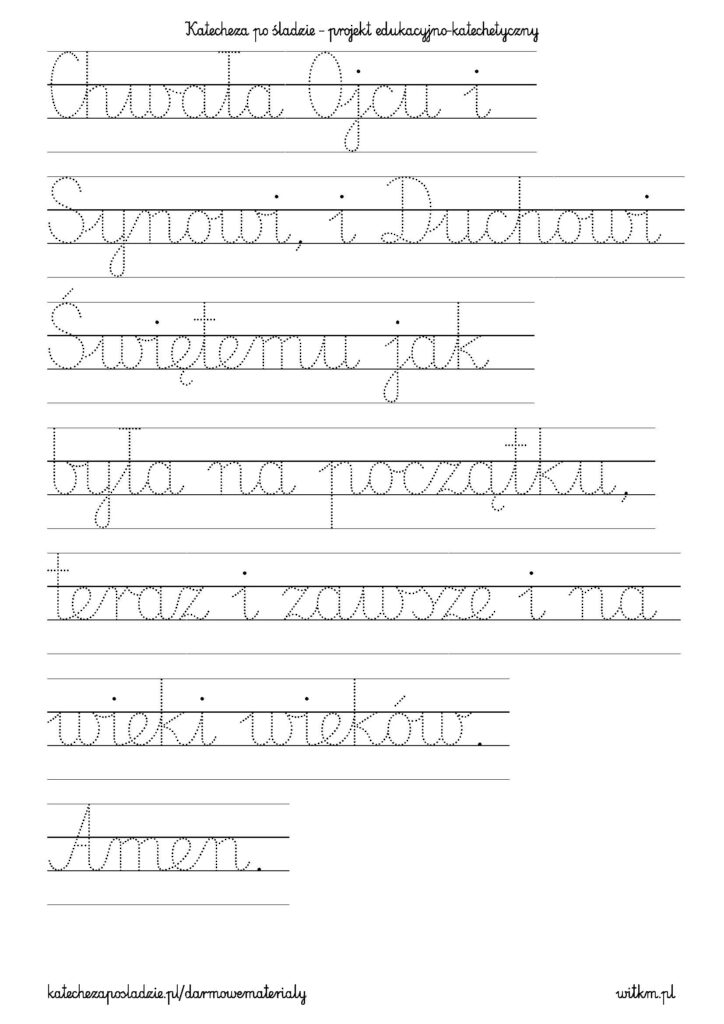 Katecheza po śladzie - projekt edukacyjno-katechetyczny
Chwała Ojcu i
Synowi, i Duchowi
Świętemu jak
była na początku,
teraz i zawsze i na
wieki wieków.
Amen.
katechezaposladzie.pl/darmowematerialy
witkm.pl